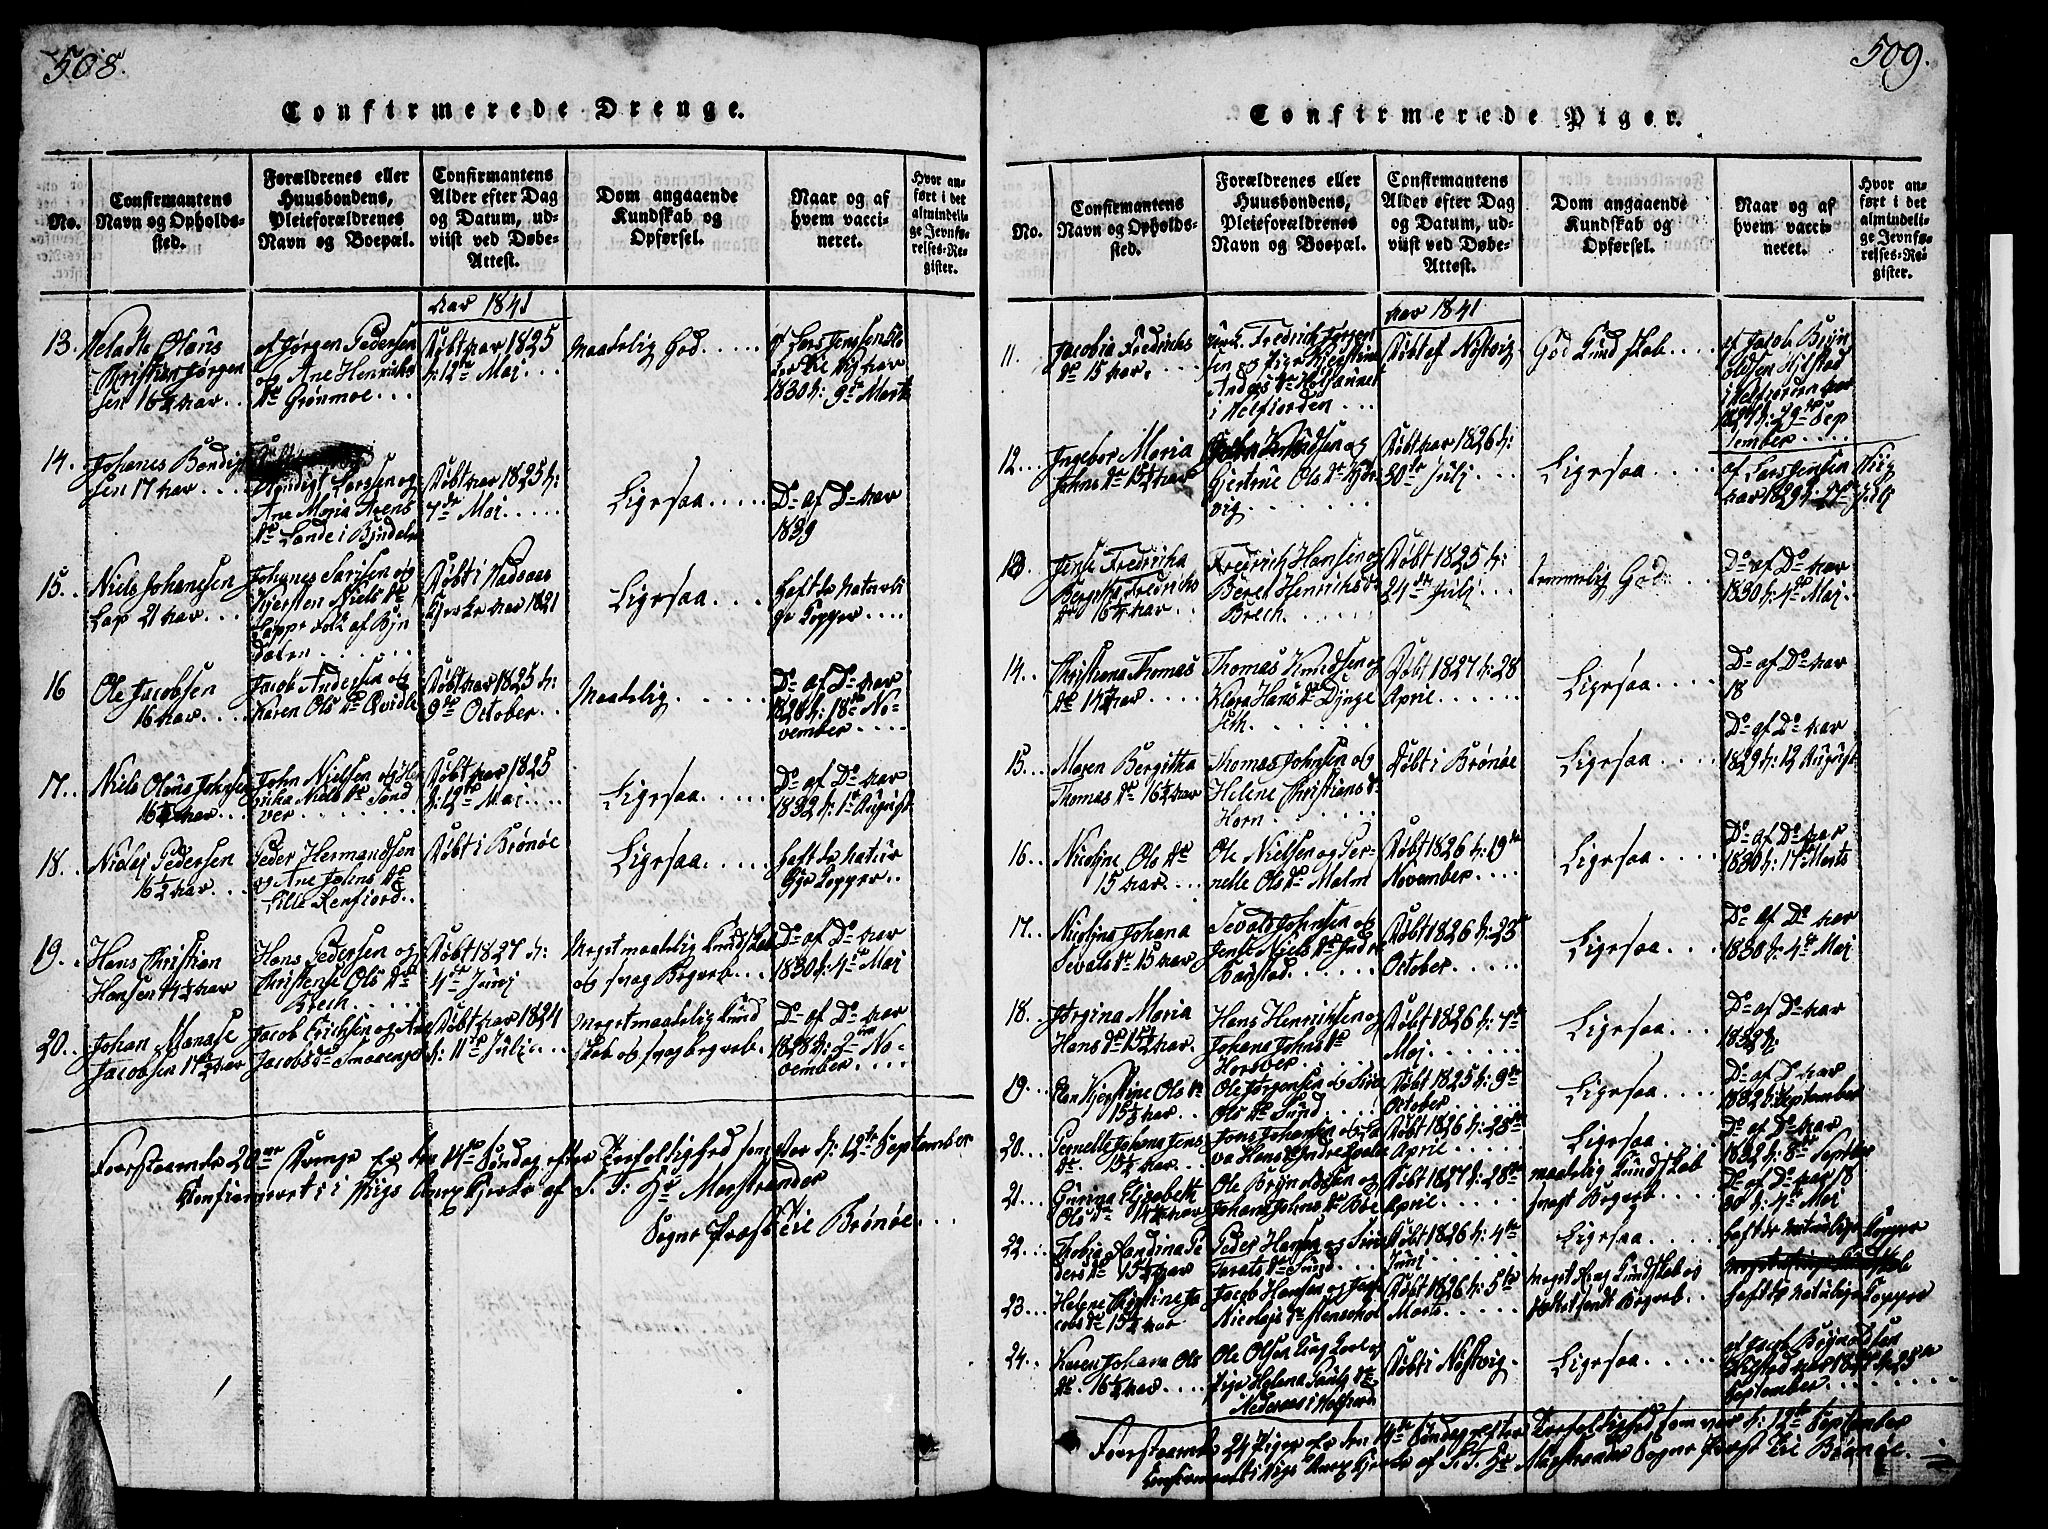 508.
Confirmerede Drenge.
No.
Confirmantens
Navn og Opholds-
sted.
Forældrenes eller
Huusbondens,
Pleieforældrenes
Navn og Boepæl.
Confirmantens
Alder efter Dag
og Datum, ud-
viist ved Døbe-
Attest.
Dom angaaende
Kundskab og
Opførsel.
Naar og af
hvem vacci-
neret.
Hvor an-
ført i det
almindeli-
ge Jevnfø-
relses-Re-
gister.
Aar 1841
13.
Olaus
Christian Jørgen
sen 16 1/2 Aar
af Jørgen Pedersen
og Ane Henrichs
Dr Grønmoe
Døbt Aar 1825
d: 12te Maj
Maadelig God
1830 d: 9de Marts
14.
Johanes Bendigt
sen 17 Aar
Bendigt Larssen og
Ane Maria Arens
Dr Lande i Bindalen
Døbt Aar 1825 d:
7de Maj
Ligesaa
Do af Do Aar
1839
15.
Niels Johanesen
Lap 21 Aar
Johanes Larsen og
Kjersten Niels Dr
Lappe Folk af Bin
dalen
Døbt i
Kjerke Aar 1821
Ligesaa
Haft de Naturli
ge Kopper
16
Ole Jacobsen
16 Aar
Jacob Andersen og
Karen Ols Dr Qvidle
Døbt Aar 1825 d:
9de October
Maadelig
Do af Do Aar
1828 d: 18de No-
vember
17.
Niels Olaus Johnsen
16 1/2 Aar
John Nielsen og Hen
rikka Niels Dr Sand
ver
Døbt Aar 1825
d: 12te Maj
Ligesaa
Do af Do Aar
1832 d: 1ste August
18.
Nicolaj Pedersen
16 1/2 Aar
Peder Hermandsen
og Ane Johns Dr
Lille Renfjord
Døbt i Brønøe
Ligesaa
Haft de Natur
lige Kopper
19.
Hans Christian
Hansen 14 1/2 Aar
Hans Pedersen og
Christense Ols Dr
Brech
Døbt 1827 d:
4de Junj
Meget maadelig Kundskab
og svag Begreb
Do af Do Aar
1830 d: 4de Maj
20.
Johan Manase
Jacobsen 17 1/2 Aar
Jacob Erichsen og Ane
Jacobs Dr Smorenge
Døbt Aar 1824
d: 11te Julj
Meget maadelig Kund
skab og svag begreb
Do af Do Aar
1828 d: 2den No-
vember
Foerstaaende 20ve Drenge er den 14de Søndag efter Trefoldighed som var d: 12te September
Konfirmeret i Wigs Anex Kjerke af S. T. Hr Mosstrander
Sogne Præst til Brønøe
509.
Confirmerede Piger.
No.
Confirmantens
Navn og Opholds-
sted.
Forældrenes eller
Huusbondens,
Pleieforældrenes
Navn og Boepæl.
Confirmantens
Alder efter Dag
og Datum, ud-
viist ved Døbe-
Attest.
Dom angaaende
Kundskab og
Opførsel.
Naar og af
hvem vacci-
neret.
Hvor an-
ført i det
almindeli-
ge Jevnfø-
relses-Re-
gister.
Aar 1841
11.
Jacobia Fredrichs
Dr 15 Aar
Fredrich Jørgen
sen og Pige Kjerstina
Anders Dr
i Velfjorden
Døbt af Nøstvig
God Kundskab
af Jacob Brijn
oldsen Hilstad
i Velfjorden Aar
d: 29de Sep
tember
12.
Ingebor Maria
Johns Dr 15 1/2 Aar
John Knudsen og
Gjertrue Ols Dr
vig
Døbt Aar 1826 d:
30te Julj
Ligesaa
af Lars Jensen
Aar 1829
13
Jense Fredricha
Bergitha Fredrichs
Dr 16 1/2 Aar
Fredrich Hansen og
Beret Henrichs Dr
Brech
Døbt 1825 d:
24de Julj
Temmelig God
Do af Do Aar
1830 d: 4de Maj
14.
Christiana Thomas
Dr 14 1/2 Aar
Thomas Knudsen og
Klara Hans Dr Dynge
seth
Døbt 1827 d: 28
April
Ligesaa
Do af Do Aar
18
15.
Maren Bergitta
Thomas Dr 16 1/2 Aar
Thomas Johnsen og
Helene Christians Dr
Horn
Døbt i Brønøe
Ligesaa
Do af Do Aar
1829 d: 12 August
16
Nicoline Ols Dr
15 Aar
Ole Nielsen og Per-
nelle Ols Dr Malm
Døbt 1826 d: 19de
November
Ligesaa
Do af Do Aar
1830 d: 17de Marts
17.
Nicoline Johana
Sevals Dr 15 Aar
Sevald Johnsen og
Jense Niels Dr Indre
Barstad
Døbt 1826 d: 23de
October
Ligesaa
Do af Do Aar
1830 d: 4de Maj
18.
Jørgina Maria
Hans Dr 15 1/2 Aar
Hans Henrichsen og
Johana Johns Dr
Horsver
Døbt 1826 d: 7de
Maj
Ligesaa
Do af Do Aar
1832 d:
19.
Kjerstine Ols Dr
15 1/2 Aar
Ole Jørgensen og
Ols Dr Sund
Døbt 1825 d: 9de
October
Ligesaa
Do af Do Aar
1832 September
20.
Pernelle Johana Jens
Dr 15 1/2 Aar
Jens Johansen og
Hans Dr Indre
Døbt 1826 d: 28de
April
Ligesaa
Do af Do Aar
1832 d: 8de Septber
21.
Gurina Elisabeth
Ols Dr 14 1/2 Aar
Ole Brynoldsen og
Johana Johns Dr Bøe
Døbt 1827 d: 28de
April
maadelig Kundskab
svagt Begreb
Do af Do Aar 18
30 d: 4de Maj
22.
Randina Pe
ders Dr 15 1/2 Aar
Peder Hansen og
Dr Sund
Døbt 1826 d: 4de
Junj
Ligesaa
Haft de naturlige Kopper
23.
Helene Christine Ja
cobs Dr 15 1/2 Aar
Jacob Hansen og
Nicolajs Dr
Døbt 1826 d: 5te
Marts
Meget Ring Kundskab og
Begreb
Haft de naturlige Kopper
24.
Karen Johana Ols
Dr 16 1/2 Aar
Ole Olsen Ung Karl og
Pige Helena Dr
i Velfjord
Døbt i Nøstvig
Ligesaa
af Jacob Brynoldsen
Hilstad Aar 1827 d: 25de
September
Foerstaaende 24 Piger er den 14de Søndag efter Trefoldighed som var d: 12te September
konfirmeret i Wigs Anex Kjerke af S. T. Hr Mosstrander Sogne Præst til Brønøe